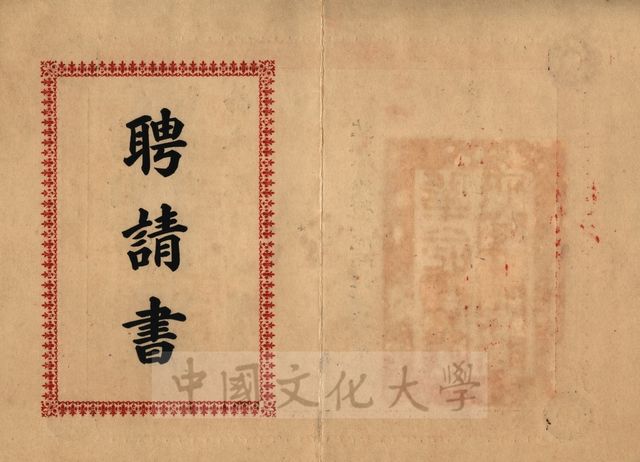 聘請書
中國文化大學